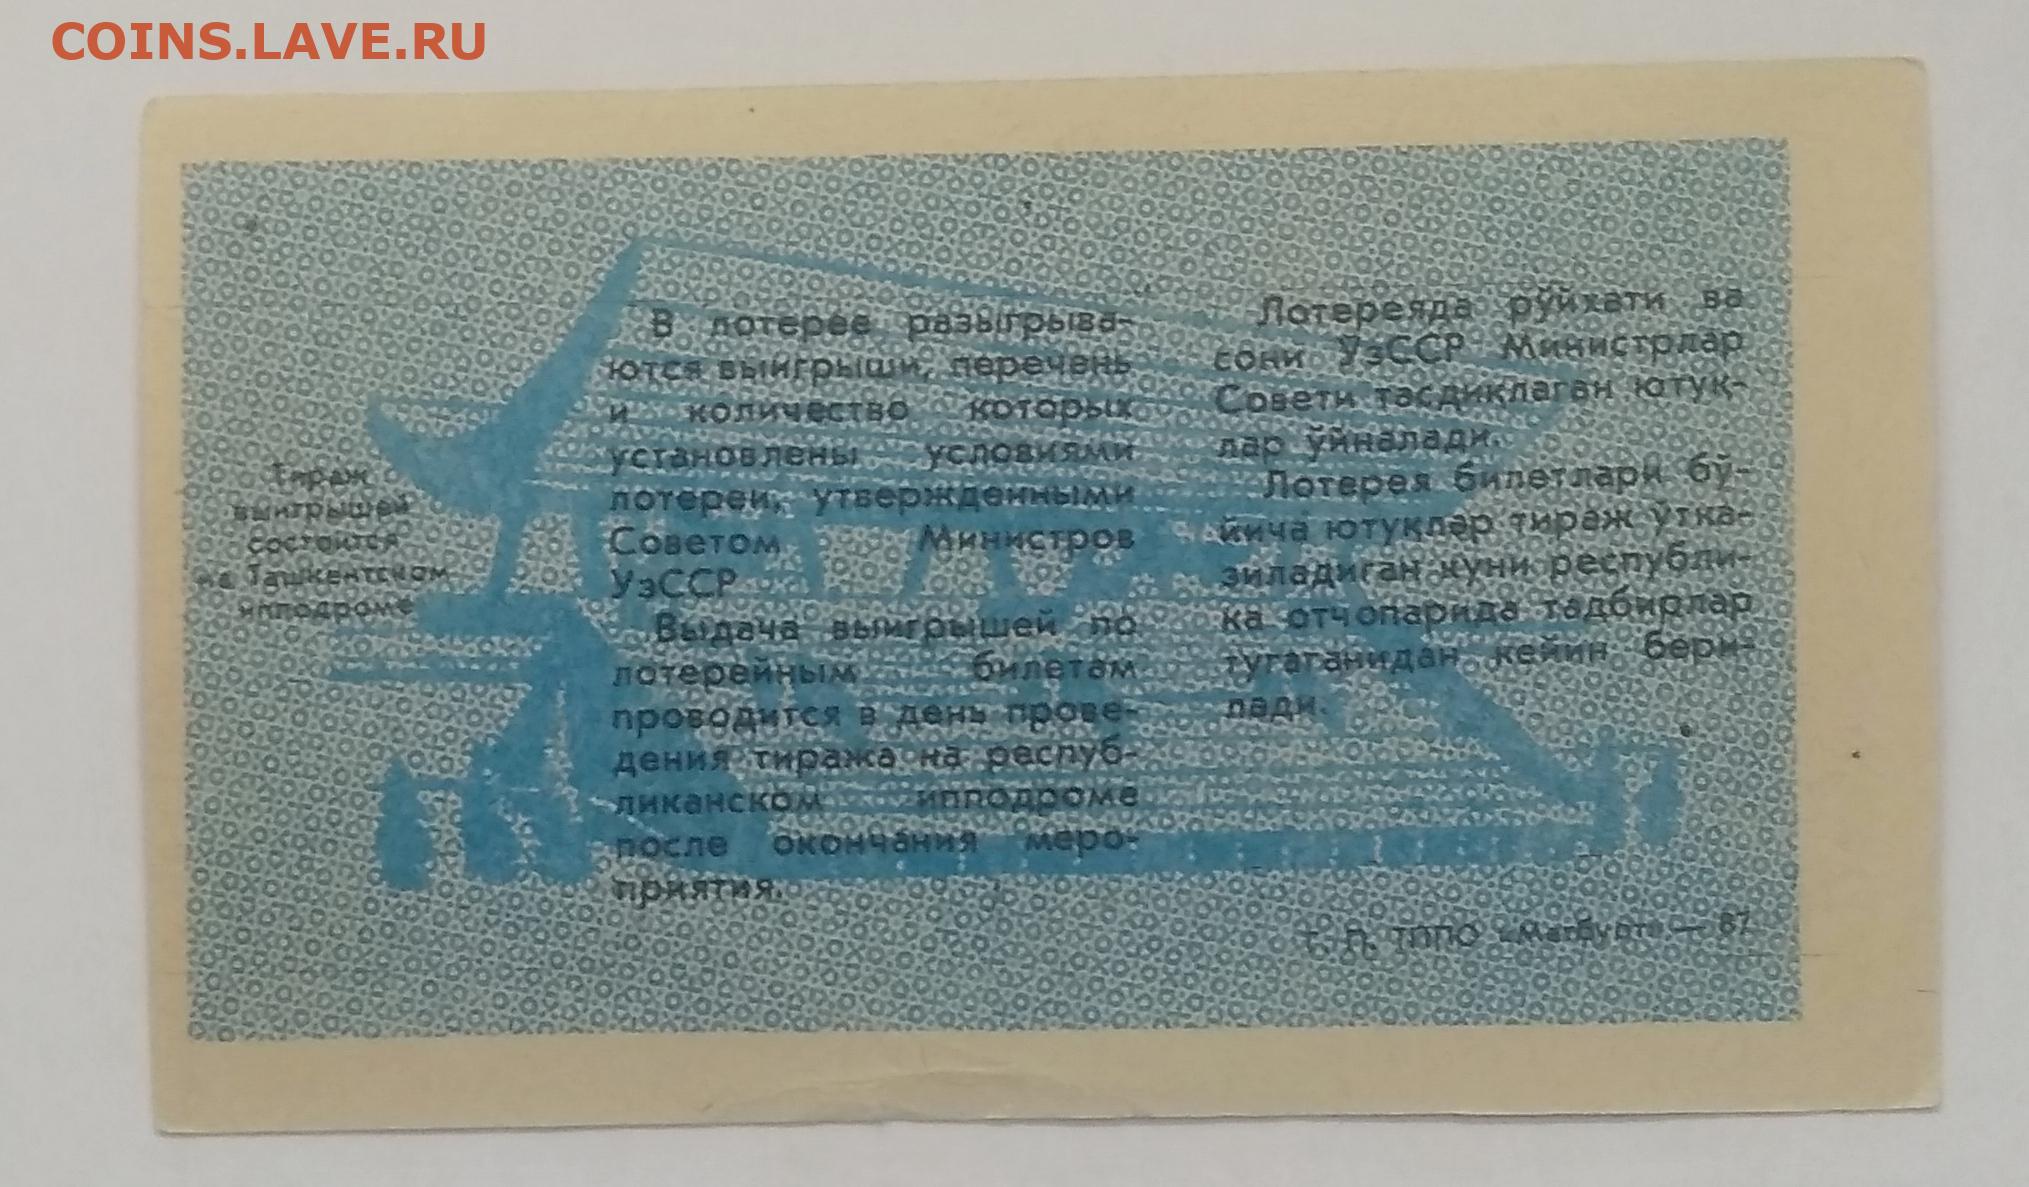 COINS.LAVE.RU
Тираж
выигрышей
состоится
на Ташкентском
ипподроме
В лотерее разыгрыва-
ются выигрыши, перечень
и количество которых
установлены условиями
лотереи, утвержденными
Советом Министров
УзССР
Выдача выигрышей по
лотерейным билетам
проводится в день прове-
дения тиража на респуб-
ликанском ипподроме
после окончания меро-
приятия.
Лотереяда рўйхати ва
сони УзССР Министрлар
Совети тасдиқлаган ютуқ-
лар ўйналади.
Лотерея билетлари бў-
йича ютуқлар тираж ўтка-
зиладиган куни республи-
ка отчопарида тадбирлар
тугаганидан кейин бери-
лади.
Т. П. ТППО «Матбуот» — 87